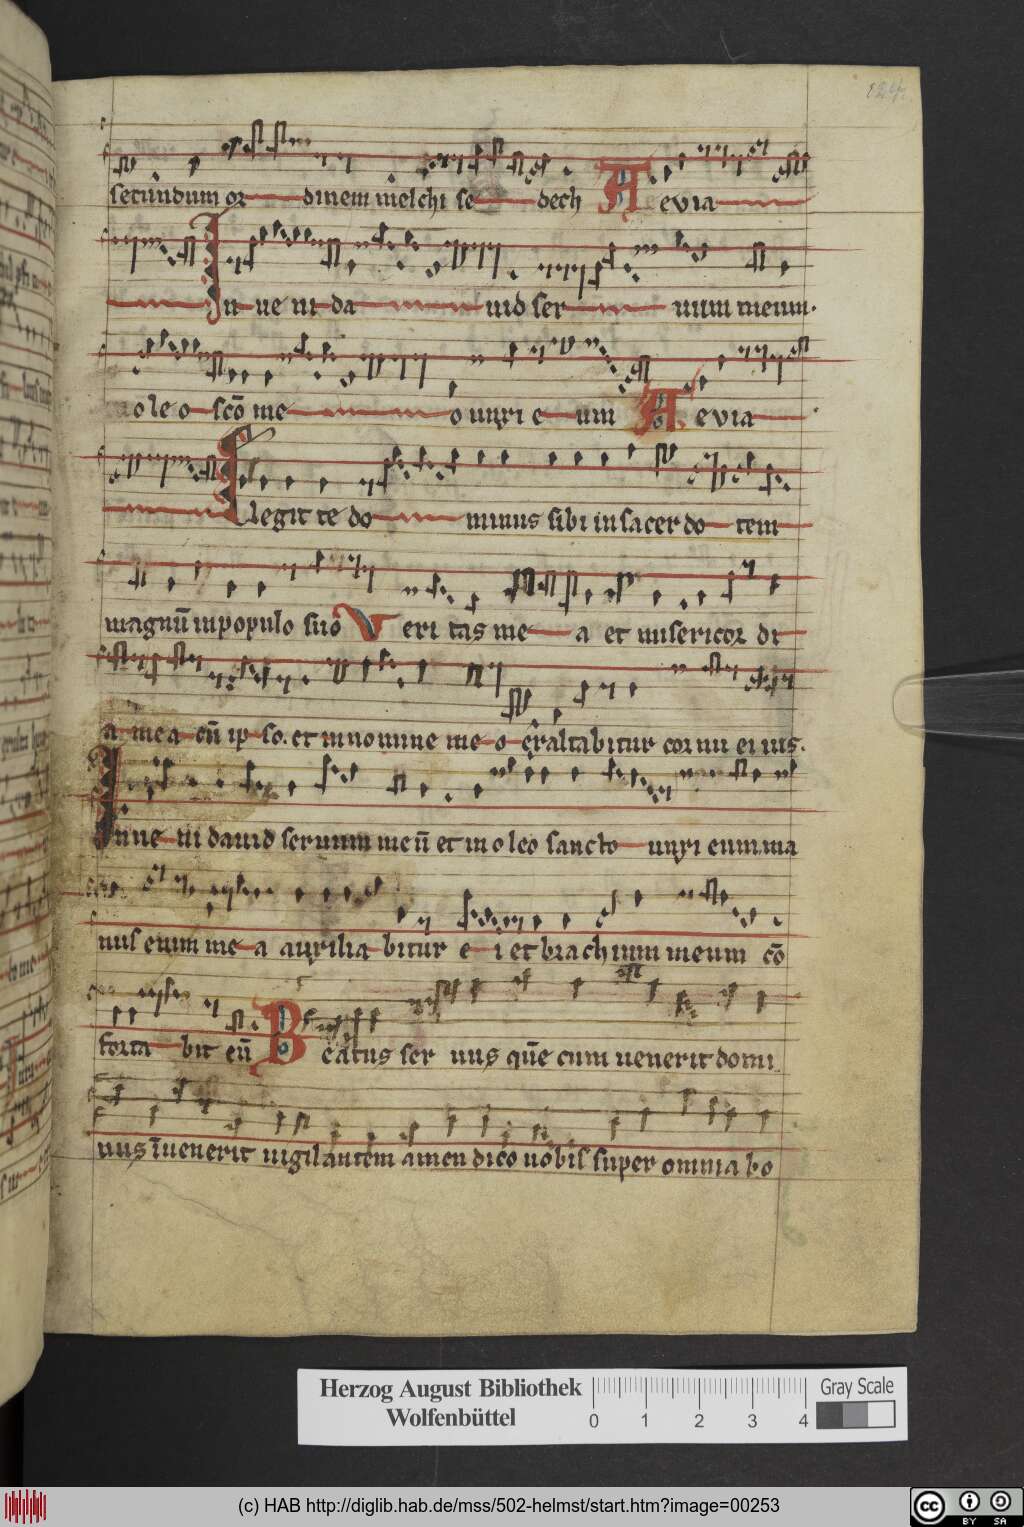 124.
secundum or dinem melchi se dech A evia
In ve ni da uid ser uum meum.
o le o scō me o unxi e um A evia
Elegit te do minus sibi in sacer do tem
magnū in populo suo Veri tas me a et misericor di
a mea cū ip so. et in nomine me o exaltabitur cornu ei ius.
Inve ni david servum meū et in o leo sancto unxi eum ma
nus enim me a auxilia bitur e i et brachium meum cō
forta bit eū Beatus ser uus quē cum venerit domi
nus īvenerit vigilantem amen dico vobis super omnia bo
Herzog August Bibliothek
Wolfenbüttel
0 1 2 3 4
Gray Scale
(c) HAB http://diglib.hab.de/mss/502-helmst/start.htm?image=00253
cc BY SA